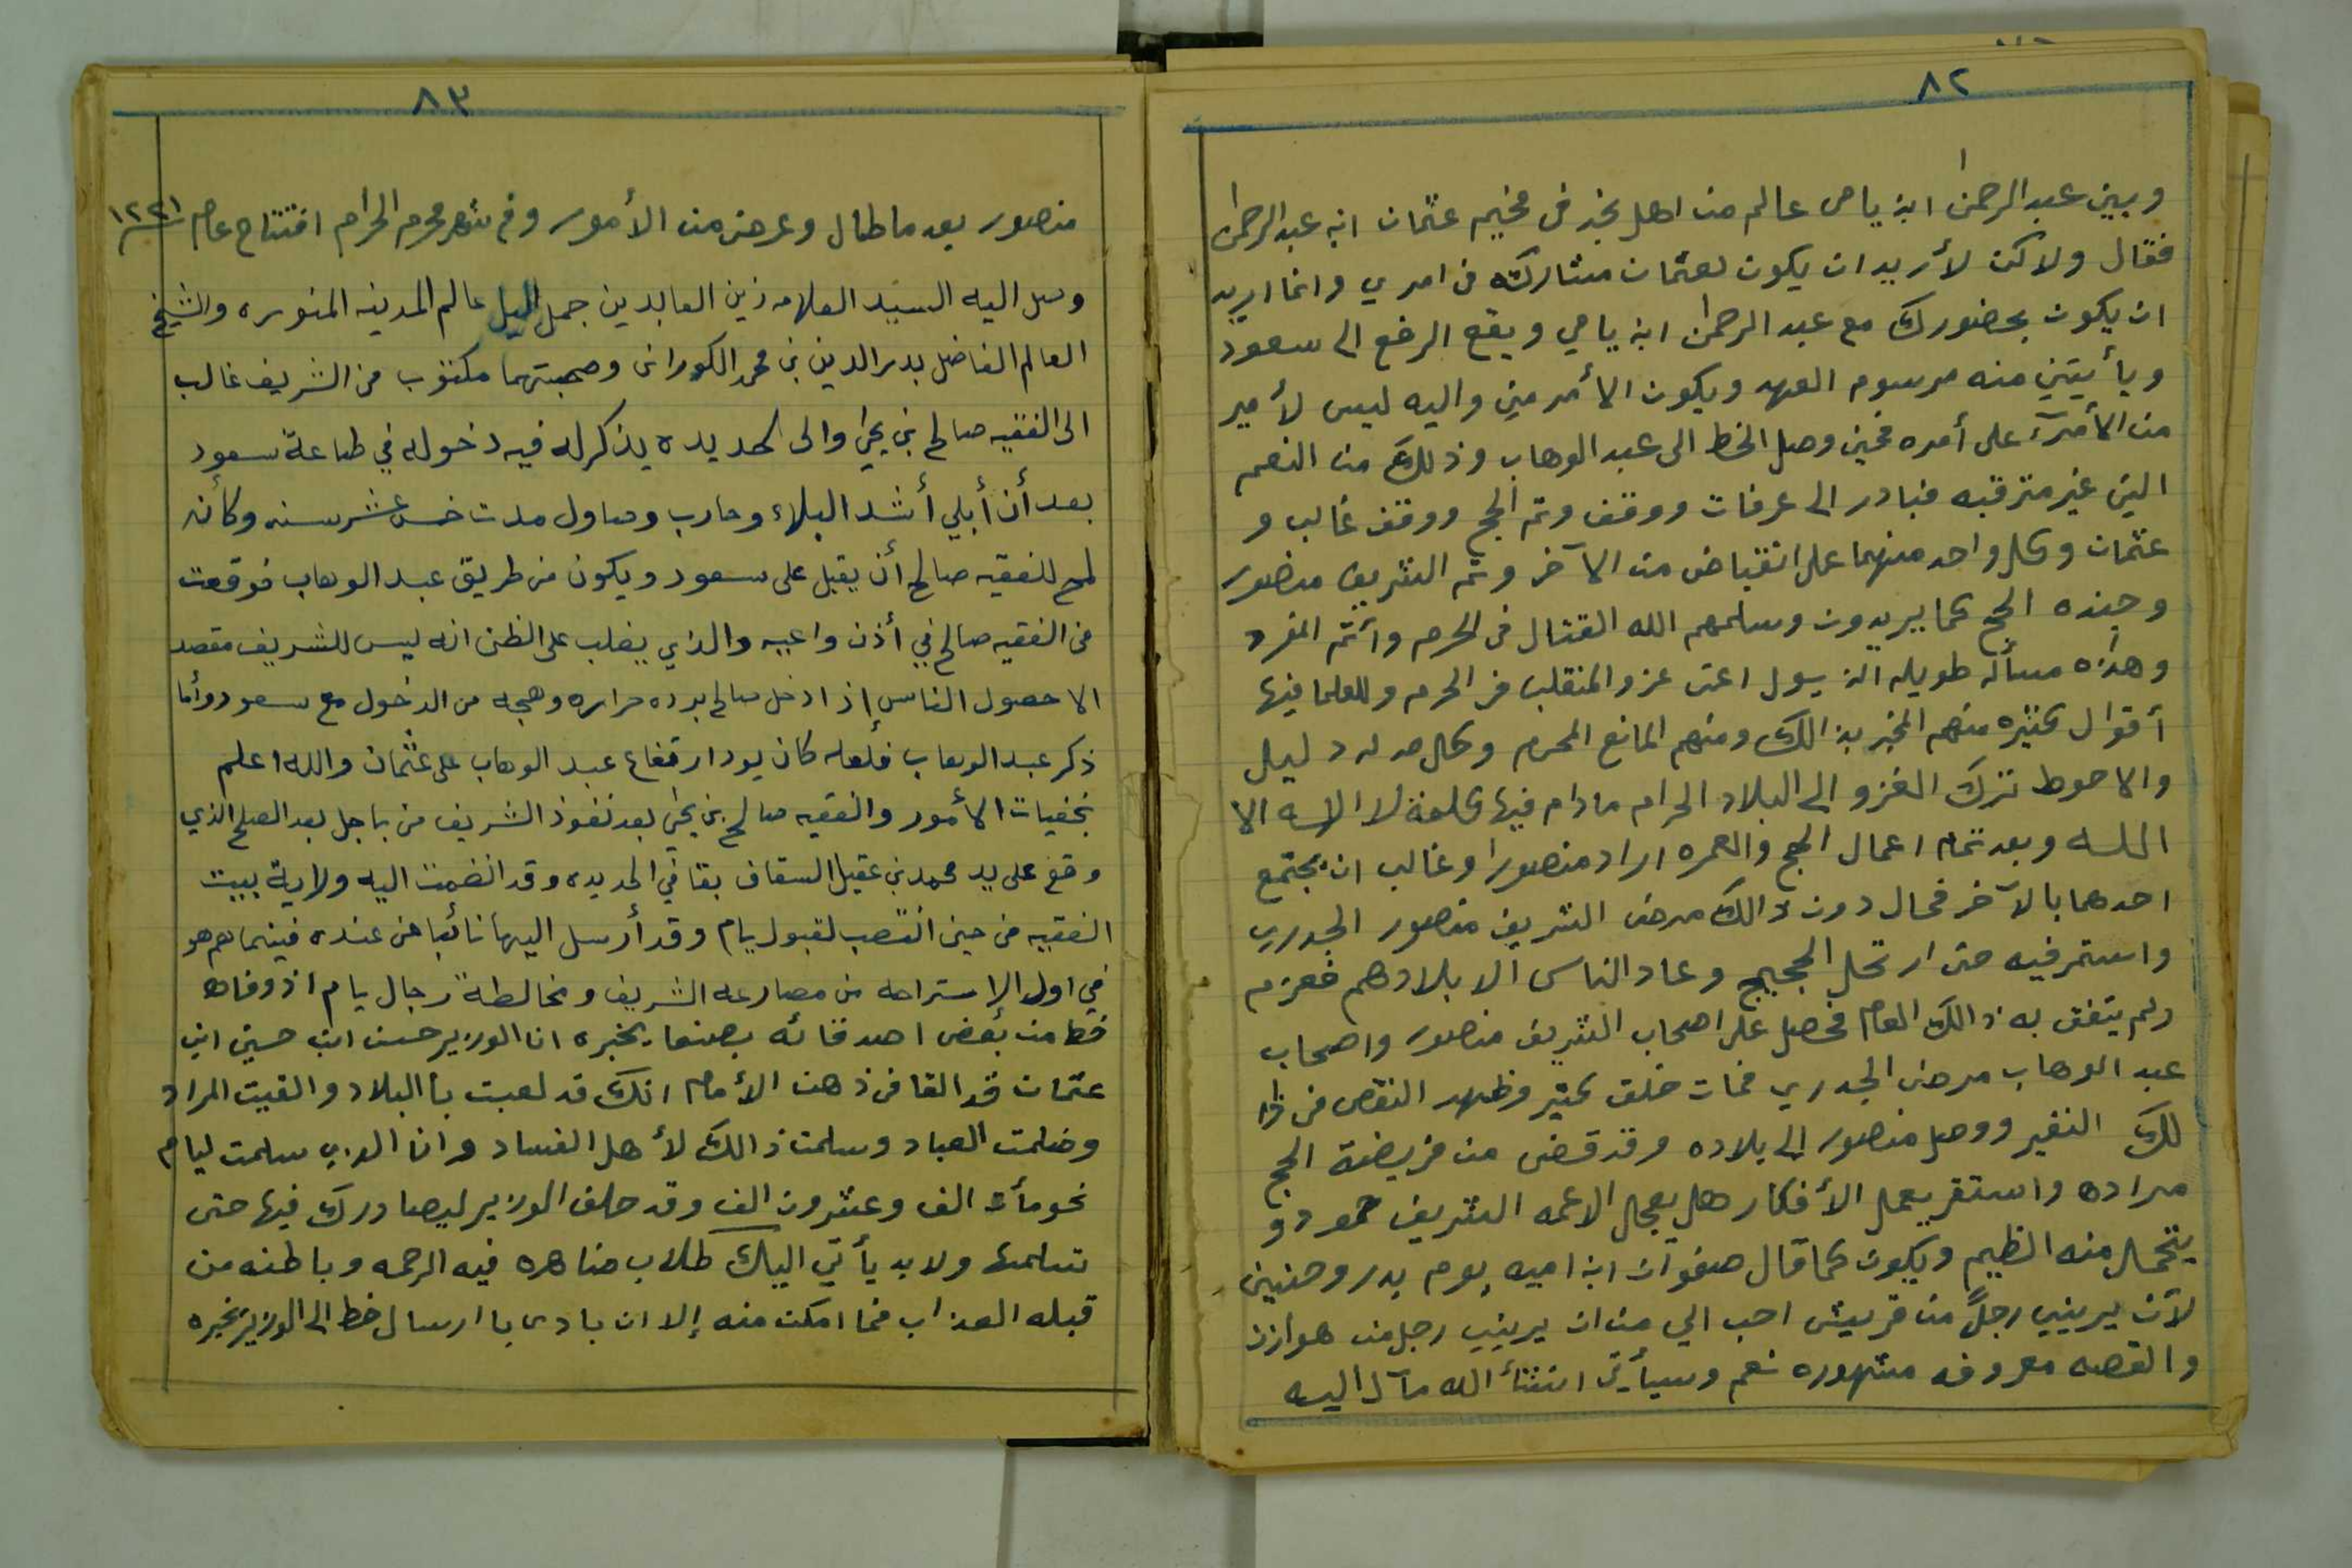 ٨٢
وبين عبد الرحمن ابن يامى عالم من اهل نجد فى مخيم عثمان ابن عبد الرحمن
فقال ولاكن لأريد ان يكون لعثمان مشاركه فى امري وانما اريد
ان يكون بحضورك مع عبد الرحمن ابن يامي ويقع الرفع الى سعود
ويأتيني منه مرسوم العهد ويكون الأمر مني واليه ليس لأمير
من الأمرآء على أمره فحين وصل الخط الى عبد الوهاب وذلك من النعم
التي غير مترقبه فبادر الى عرفات ووقف وتم الحج ووقف غالب و
عثمان وكل واحد منهما على انقباض من الآخر وتم الشريف منصور
وجنده الحج كما يريدون وسلمهم الله القتال فى الحرم وأتم المفرد
وهذه مسألة طويله الذيول اعنى غزو المتغلب فى الحرم وللعلما فيها
أقوال كثيره منهم المخبر بذالك ومنهم المانع المحرم وكل له دليل
والاحوط ترك الغزو الى البلاد الحرام مادام فيها كلمة لا اله الا
الله وبعد تمام اعمال الحج والعمره اراد منصورا وغالب ان يجتمع
احدهما بالآخر فحال دون ذالك مرض الشريف منصور الجدري
واستمر فيه حتى ارتحل الحجيج وعاد الناس الا بلادهم فعزم
ولم يتفق به ذالك العام فحصل على اصحاب الشريف منصور واصحاب
عبد الوهاب مرض الجدري فمات خلق كثير وظهر النقص فى ذا
لك النفير ووصل منصور الى بلاده وقد قضى من فريضة الحج
مراده واستقر يعمل الأفكار هل يعجل الا عمه الشريف حمود و
يتحمل منه الظيم ويكون كما قال صفوان ابن اميه يوم بدر وحنين
لآن يربيني رجلً من قريش احب الي من ان يربيني رجل من هوازن
والقصه معروفه مشهوره نعم وسيأتي انشأ الله مآل اليه
٨٣
منصور بعد ما طال وعرض من الأمور وفى شهر محرم الحرام افتتاح عام ١٢٢١
وصل اليه السيد العلامه زين العابدين جمل الليل عالم المدينه المنوره والشيخ
العالم الفاضل بدر الدين بن محمد الكورانى وصحبتهما مكتوب من الشريف غالب
الى الفقيه صالح بن يحيى والى الحديده يذكر له فيه دخوله في طاعة سعود
بعد أن أبلي أشد البلاء وحارب وصاول مدت خمس عشر سنه وكأنه
لمح للفقيه صالح أن يقبل على سعود ويكون من طريق عبد الوهاب فوقعت
من الفقيه صالح في أذن واعيه والذي يغلب على الظن انه ليس للشريف مقصد
الا حصول الناس إذا دخل صالح برده حراره وهجه من الدخول مع سعود وأما
ذكر عبد الوهاب فلعله كان يود ارتفاع عبد الوهاب على عثمان والله اعلم
بخفيات الأمور والفقيه صالح بن يحيى بعد نفوذ الشريف من باجل بعد الصلح الذي
وقع على يد محمد بن عقيل السقاف بقا في الحديده وقد انضمت اليه ولاية بيت
الفقيه من حين انتصب لقبول يام وقد أرسل اليها نائبا من عنده فبينما هو
في اول الإستراحه من مصارعه الشريف ومخالطة رجال يام اذ وفاه
خط من بعض اصدقائه بصنعا يخبره ان الوزير حسن ابن حسين ابن
عثمان قد القا فى ذهن الأمام انك قد لعبت با البلاد والقيت المراد
وضلمت العباد وسلمت ذالك لأهل الفساد وان الذي سلمت ليام
نحو مأت الف وعشرون الف وقد حلف الوزير ليصادرك فيها حتى
تسلمها ولابد يأتي اليك طلاب ضاهره فيه الرحمه وباطنه من
قبله العذاب فما امكن منه إلا ان بادى با ارسال خط الى الوزير يخبره